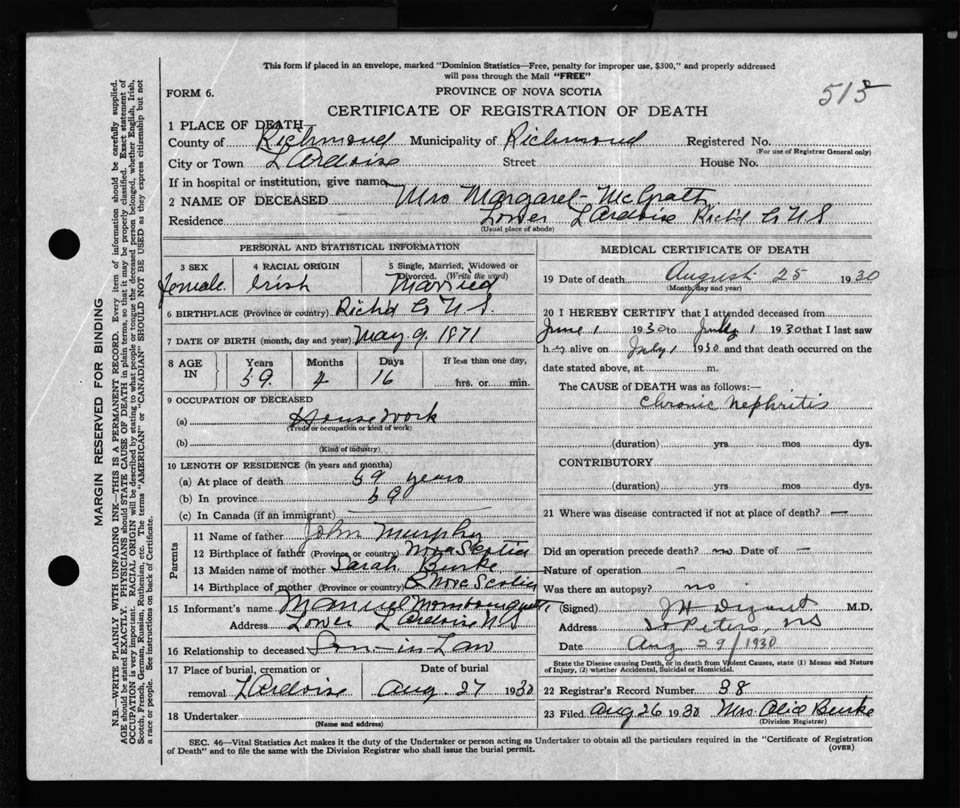 This form if placed in an envelope, marked "Dominion Statistics—Free, penalty for improper use, $300," and properly addressed
will pass through the Mail "FREE"
FORM 6.
PROVINCE OF NOVA SCOTIA
515
CERTIFICATE OF REGISTRATION OF DEATH
1 PLACE OF DEATH—
County of Richmond Municipality of Richmond Registered No.
(For use of Registrar General only)
City or Town L'Ardoise Street House No.
If in hospital or institution, give name
2 NAME OF DECEASED Mrs Margaret McGrath
Residence Lower L'Ardoise Rich'd Co N S
(Usual place of abode)
PERSONAL AND STATISTICAL INFORMATION
3 SEX 4 RACIAL ORIGIN 5 Single, Married, Widowed or
Divorced. (Write the word)
Female Irish Married
6 BIRTHPLACE (Province or country) Rich'd Co N.S.
7 DATE OF BIRTH (month, day and year) May 9, 1871
8 AGE IN Years Months Days If less than one day,
59 4 16 hrs. or min.
9 OCCUPATION OF DECEASED
(a) House Work
(Trade or occupation or kind of work)
(b)
(Kind of industry)
10 LENGTH OF RESIDENCE (in years and months)
(a) At place of death 59 years
(b) In province 59
(c) In Canada (if an immigrant) —
Parents
11 Name of father John Murphy
12 Birthplace of father (Province or country) Nova Scotia
13 Maiden name of mother Sarah Burke
14 Birthplace of mother (Province or country) Nova Scotia
15 Informant's name Mombourquette
Address Lower L'Ardoise N S
16 Relationship to deceased Son-in-Law
17 Place of burial, cremation or Date of burial
removal L'Ardoise Aug. 27 1930
18 Undertaker
(Name and address)
MEDICAL CERTIFICATE OF DEATH
19 Date of death August 25 1930
(Month, day and year)
20 I HEREBY CERTIFY that I attended deceased from
June 1 1930 to July 1 1930 that I last saw
her alive on July 1 1930 and that death occurred on the
date stated above, at m.
The CAUSE of DEATH was as follows:—
Chronic Nephritis
(duration) yrs mos dys.
CONTRIBUTORY
(duration) yrs mos dys.
21 Where was disease contracted if not at place of death? —
Did an operation precede death? no Date of —
Nature of operation —
Was there an autopsy? no
(Signed) M.D.
Address St Peters, NS
Date Aug 29/1930
State the Disease causing Death, or in death from Violent Causes, state (1) Means and Nature
of Injury, (2) whether Accidental, Suicidal or Homicidal.
22 Registrar's Record Number 38
23 Filed Aug 26 1930 Mrs Burke
(Division Registrar)
SEC. 46—Vital Statistics Act makes it the duty of the Undertaker or person acting as Undertaker to obtain all the particulars required in the "Certificate of Registration
of Death" and to file the same with the Division Registrar who shall issue the burial permit.
(OVER)
MARGIN RESERVED FOR BINDING
N.B.—WRITE PLAINLY WITH UNFADING INK—THIS IS A PERMANENT RECORD. Every item of information should be carefully supplied.
AGE should be stated EXACTLY. PHYSICIANS should STATE CAUSE OF DEATH in plain terms, so that it may be properly classified. Exact statement of
OCCUPATION is very important. RACIAL ORIGIN will be described by stating to what people or tongue the deceased person belonged, whether English, Irish,
Scotch, French, German, Russian, Ruthenian, etc. The terms "AMERICAN" or "CANADIAN" SHOULD NOT BE USED as they express citizenship but not
a race or people. See instructions on back of Certificate.